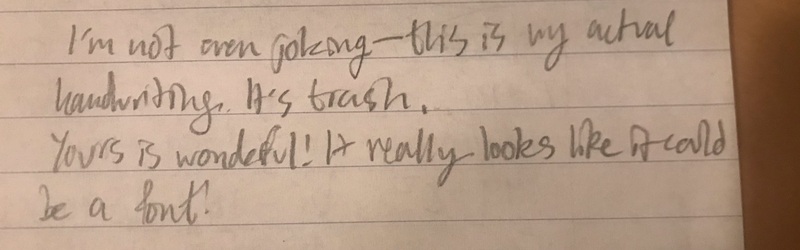 I'm not even joking—this is my actual
handwriting. It's trash.
Yours is wondeful! It really looks like it could
be a font!